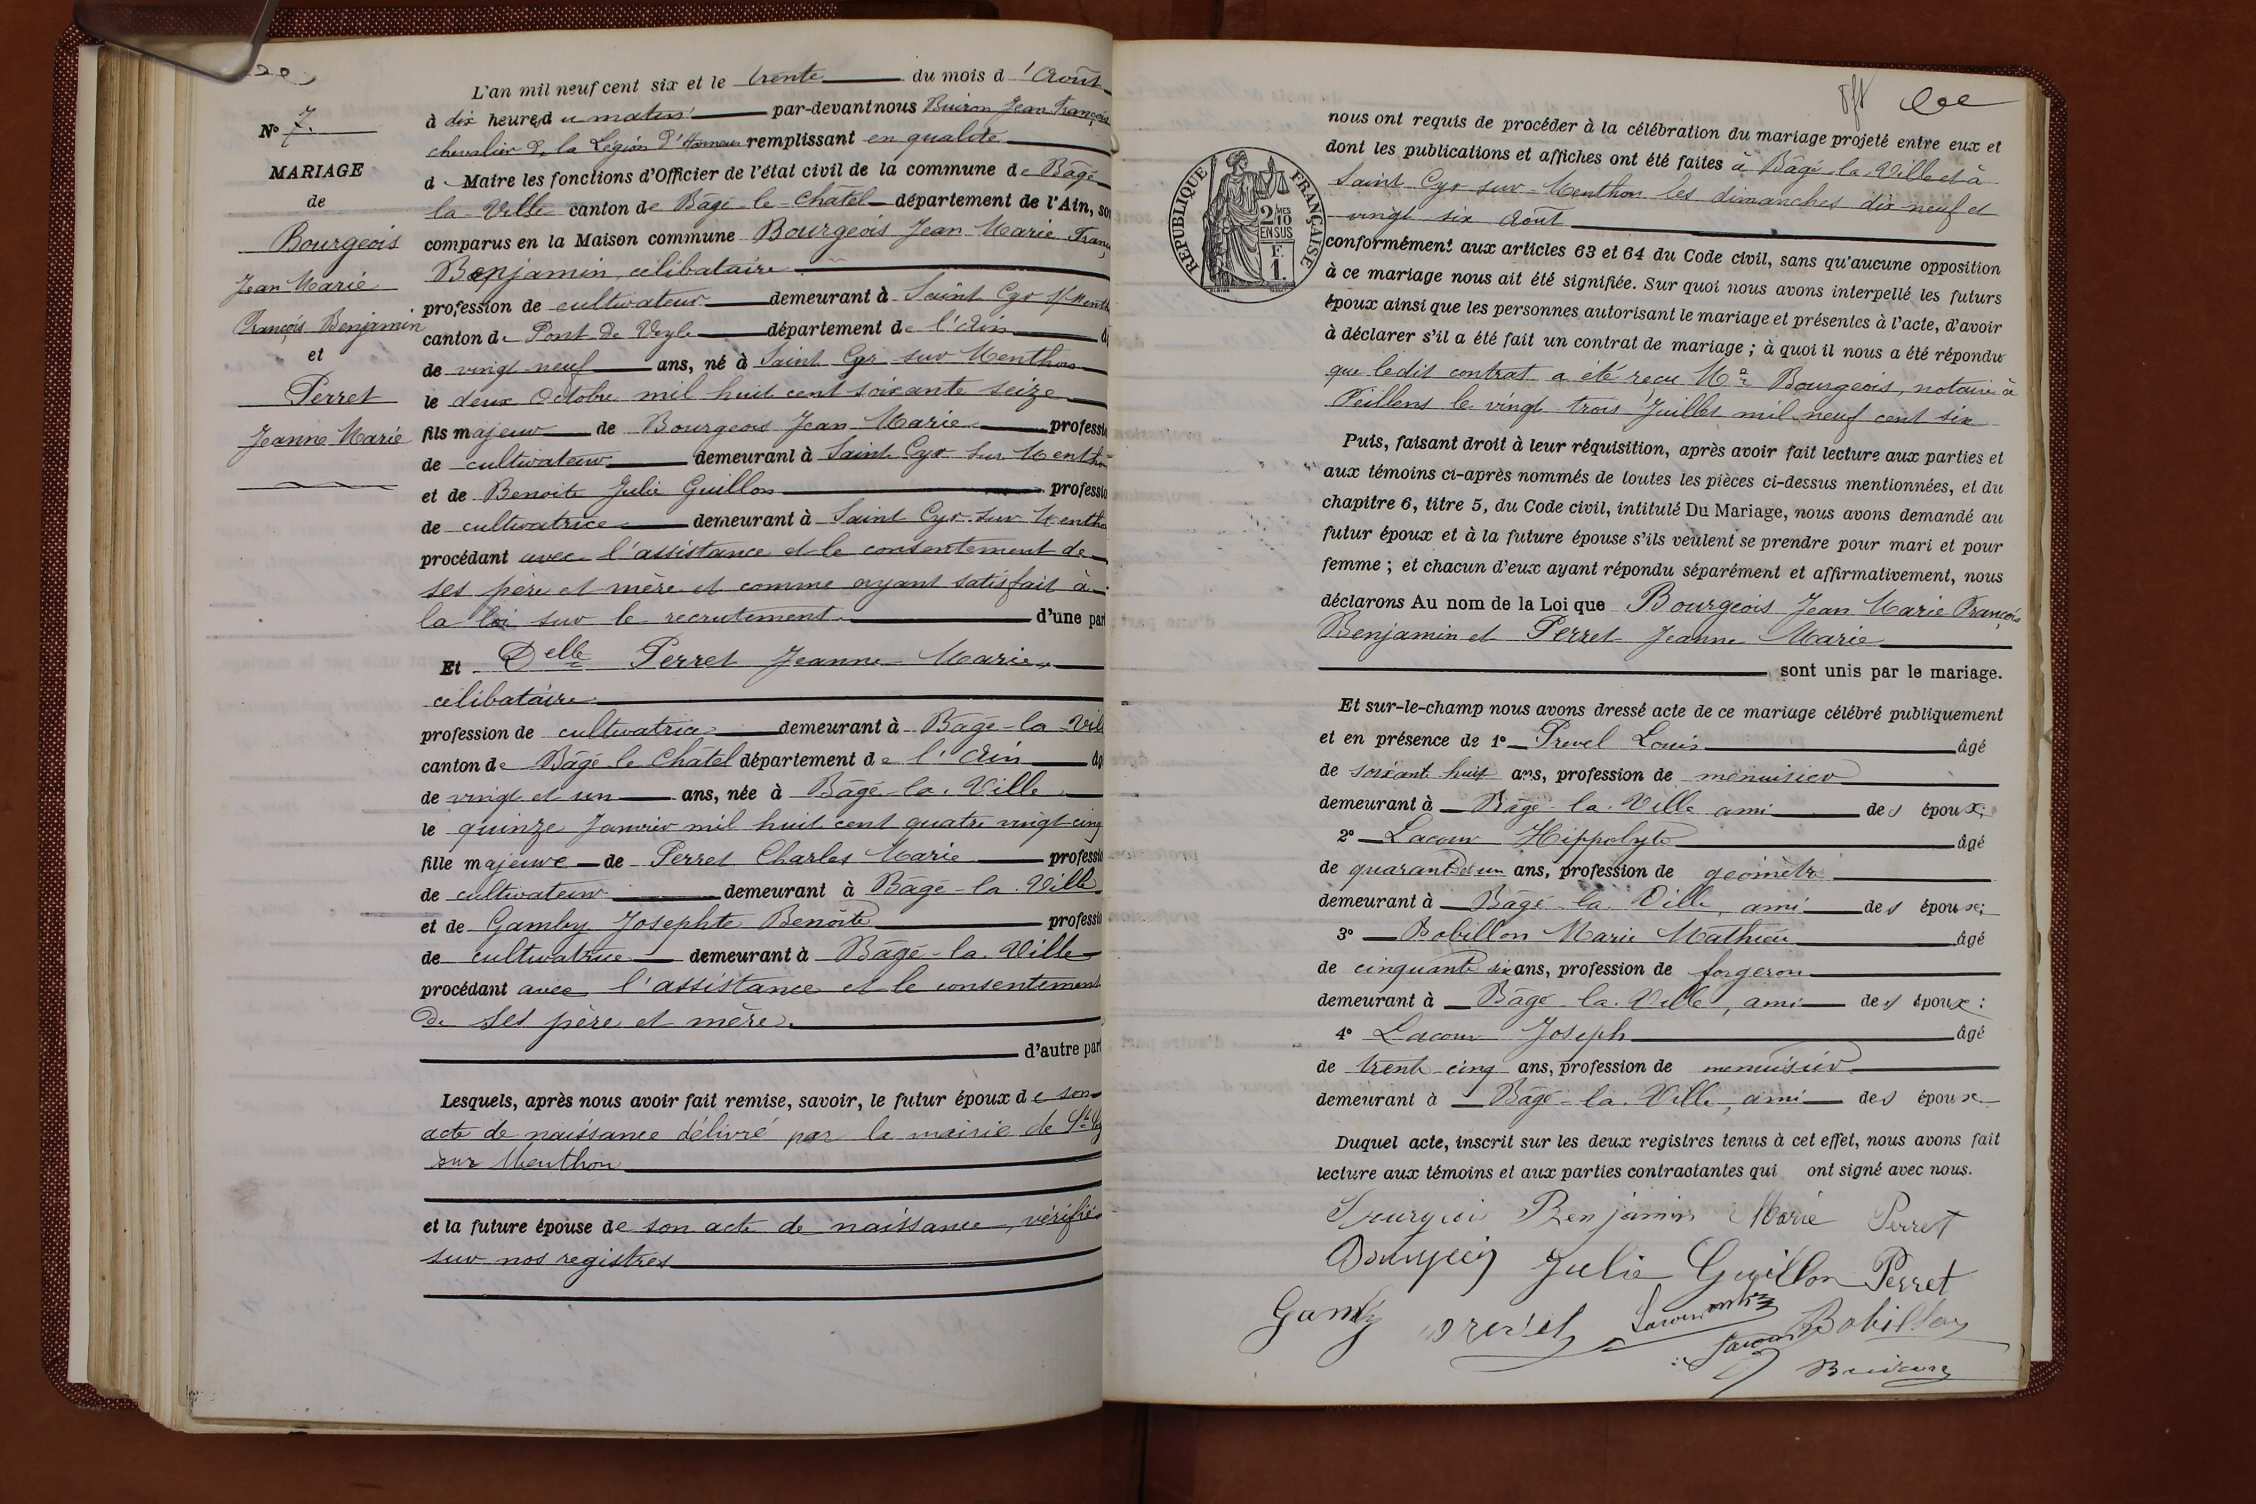 N° 7.
MARIAGE
de
Bourgeois
Jean Marie
François Benjamin
et
Perret
Jeanne Marie
L'an mil neuf cent six et le trente du mois d'Août
à dix heures du matin par-devant nous Buiron Jean François
chevalier de la Légion d'Honneur remplissant en qualité
d Maire les fonctions d'Officier de l'état civil de la commune de Bâgé
la-Ville canton de Bâgé-le-Châtel département de l'Ain, son
comparus en la Maison commune Bourgeois Jean Marie Franç
Benjamin, célibataire
profession de cultivateur demeurant à Saint Cyr s/ Menth
canton de Pont de Veyle département de l'Ain â
de vingt neuf ans, né à Saint Cyr sur Menthon
le deux Octobre mil huit cent soixante seize
fils majeur de Bourgeois Jean Marie professio
de cultivateur demeurant à Saint Cyr sur Mentho
et de Benoite Julie Guillon professio
de cultivatrice demeurant à Saint Cyr-sur Mentho
procédant avec l'assistance et le consentement de
ses père et mère et comme ayant satisfait à
la loi sur le recrutement d'une part
Et Delle Perret Jeanne Marie,
célibataire
profession de cultivatrice demeurant à Bâgé-la-Vill
canton de Bâgé le Châtel département de l'Ain âg
de vingt et un ans, née à Bâgé-la-Ville
le quinze Janvier mil huit cent quatre vingt cinq
fille majeure de Perret Charles Marie professio
de cultivateur demeurant à Bâgé-la-Ville
et de Gamby Josephte Benoîte professio
de cultivatrice demeurant à Bâgé-la-Ville
procédant avec l'assistance et le consentement
de ses père et mère.
d'autre part
Lesquels, après nous avoir fait remise, savoir, le futur époux de son
acte de naissance délivré par la mairie de St Cyr
sur Menthon
et la future épouse de son acte de naissance, vérifié
sur nos registres
RÉPUBLIQUE FRANÇAISE
2 MES
10
EN SUS
F.
1.
nous ont requis de procéder à la célébration du mariage projeté entre eux et
dont les publications et affiches ont été faites à Bâgé-la-Ville et à
Saint-Cyr-sur-Menthon les dimanches dix neuf et
vingt six Août
conformément aux articles 63 et 64 du Code civil, sans qu'aucune opposition
à ce mariage nous ait été signifiée. Sur quoi nous avons interpellé les futurs
époux ainsi que les personnes autorisant le mariage et présentes à l'acte, d'avoir
à déclarer s'il a été fait un contrat de mariage ; à quoi il nous a été répondu
que ledit contrat a été reçu Me Bourgeois, notaire à
Feillens le vingt trois Juillet mil neuf cent six
Puis, faisant droit à leur réquisition, après avoir fait lecture aux parties et
aux témoins ci-après nommés de toutes les pièces ci-dessus mentionnées, et du
chapitre 6, titre 5, du Code civil, intitulé Du Mariage, nous avons demandé au
futur époux et à la future épouse s'ils veulent se prendre pour mari et pour
femme ; et chacun d'eux ayant répondu séparément et affirmativement, nous
déclarons Au nom de la Loi que Bourgeois Jean Marie François
Benjamin et Perret Jeanne Marie
sont unis par le mariage.
Et sur-le-champ nous avons dressé acte de ce mariage célébré publiquement
et en présence de 1° Prevel Louis âgé
de soixante huit ans, profession de menuisier
demeurant à Bâgé-la-Ville ami des époux;
2° Lacour Hippolyte âgé
de quarante et un ans, profession de géomètre
demeurant à Bâgé-la-Ville, ami des époux;
3° Bobillon Marie Mathieu âgé
de cinquante six ans, profession de forgeron
demeurant à Bâgé-la-Ville, ami des époux;
4° Lacour Joseph âgé
de trente cinq ans, profession de menuisier
demeurant à Bâgé-la-Ville, ami des époux
Duquel acte, inscrit sur les deux registres tenus à cet effet, nous avons fait
lecture aux témoins et aux parties contractantes qui ont signé avec nous.
Benjamin Marie Perret
Julie Guillon Perret
Gamby Prevel Lacour Bobillon
Lacour
Buiron